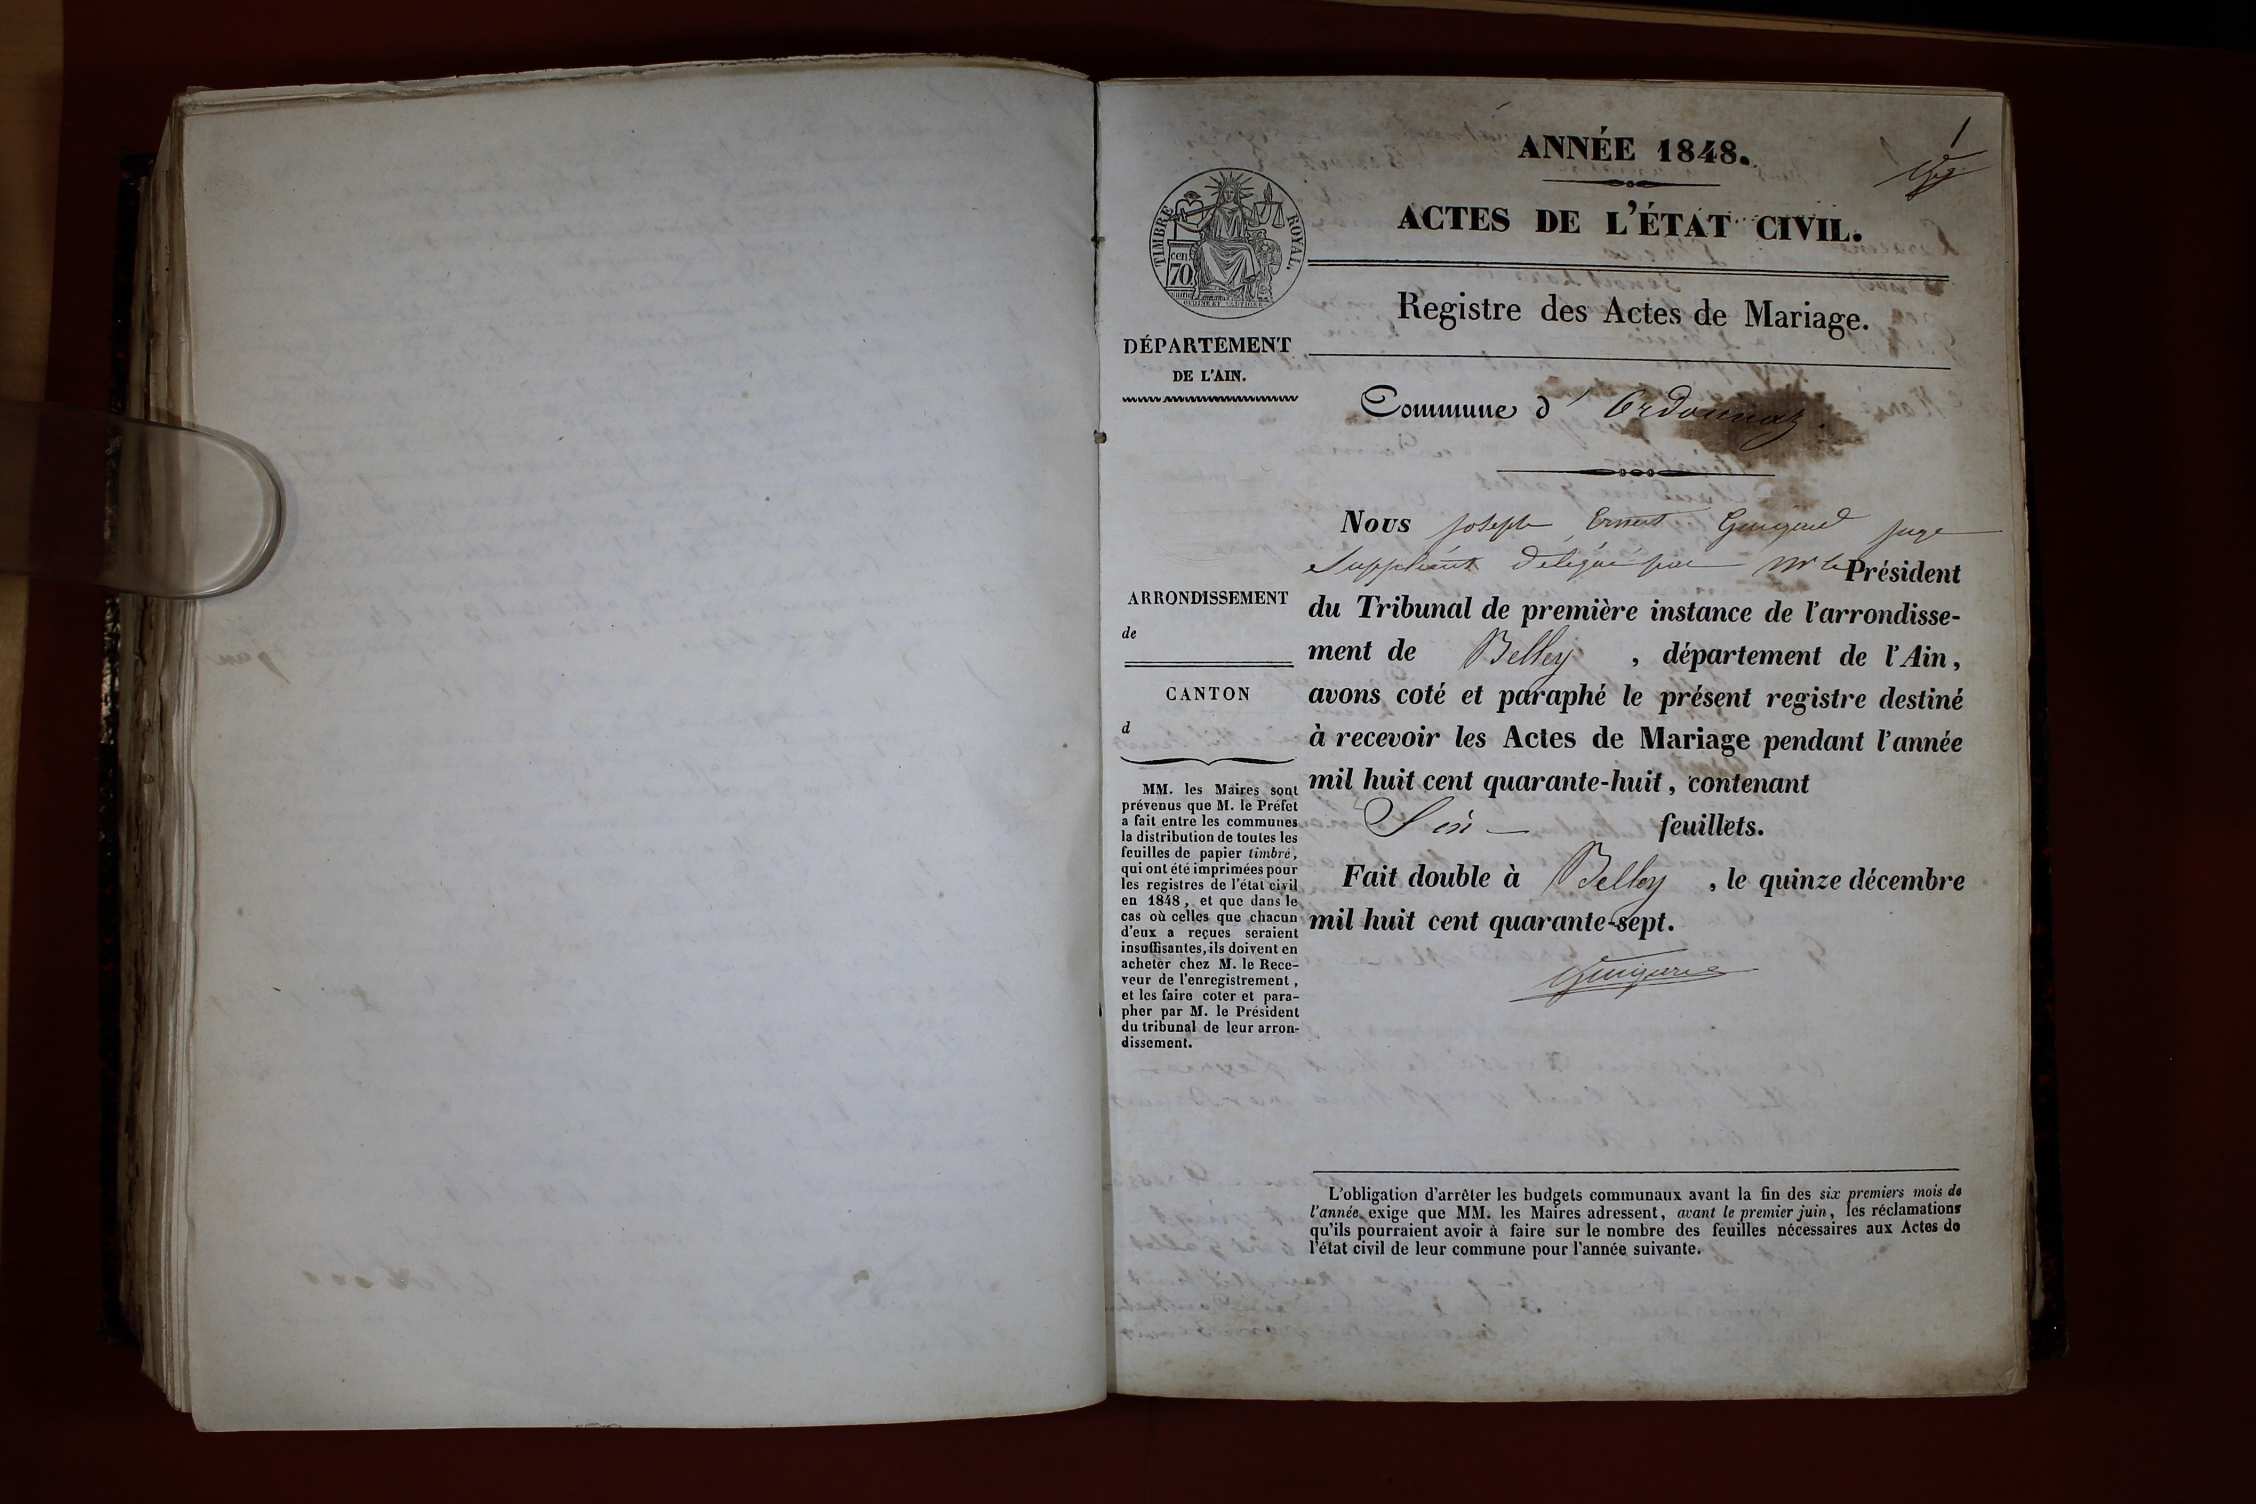 1
ANNÉE 1848.
ACTES DE L'ÉTAT CIVIL.
TIMBRE ROYAL.
cen
70
Registre des Actes de Mariage.
DÉPARTEMENT
DE L'AIN.
Commune d' Ordonnaz.
ARRONDISSEMENT
de
CANTON
d
MM. les Maires sont
prévenus que M. le Préfet
a fait entre les communes
la distribution de toutes les
feuilles de papier timbré,
qui ont été imprimées pour
les registres de l'état civil
en 1848, et que dans le
cas où celles que chacun
d'eux a reçues seraient
insuffisantes, ils doivent en
acheter chez M. le Rece-
veur de l'enregistrement,
et les faire coter et para-
pher par M. le Président
du tribunal de leur arron-
dissement.
Nous joseph Ernest juge
Suppléant délégué par Mr le Président
du Tribunal de première instance de l'arrondisse-
ment de Belley, département de l'Ain,
avons coté et paraphé le présent registre destiné
à recevoir les Actes de Mariage pendant l'année
mil huit cent quarante-huit, contenant
Six feuillets.
Fait double à Belley, le quinze décembre
mil huit cent quarante-sept.
L'obligation d'arrêter les budgets communaux avant la fin des six premiers mois de
l'année exige que MM. les Maires adressent, avant le premier juin, les réclamations
qu'ils pourraient avoir à faire sur le nombre des feuilles nécessaires aux Actes de
l'état civil de leur commune pour l'année suivante.